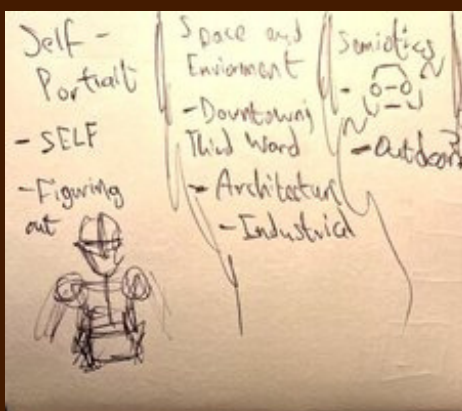 Self-
Portrait
- SELF
- Figuring
out
Space and
Enviorment
- Downtown,
Third Ward
- Architecture
- Industrial
Semiotics
- Outdoors